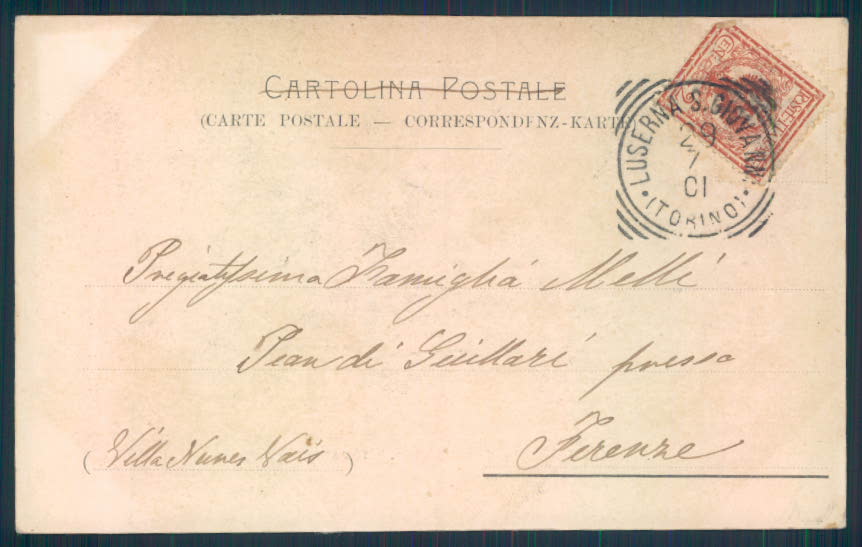 CARTOLINA POSTALE
(CARTE POSTALE — CORRESPONDENZ-KARTE
LUSERNA S. GIOVANNI
01
(TORINO)
Pregiatissima Famiglia Melli
Pian di Giullari presso
Firenze
(Villa Nunes Vais)